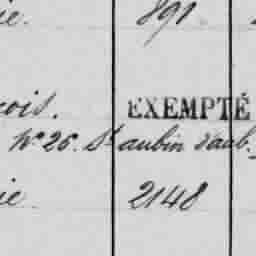 ie. 891
cois. EXEMPTÉ
No 26. St aubin d'aub.
ie 2148